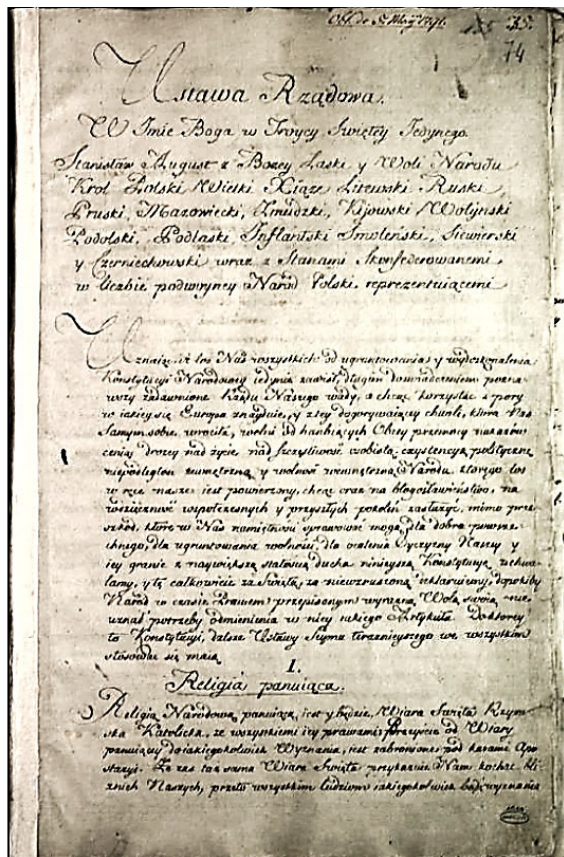 Obl. de 5. Maij 1791.
35.
74
Ustawa Rządowa.
W Imie Boga w Troycy Swiętey Jedynego
Stanisław August z Bozey Łaski y Woli Narodu
Krol Polski Wielki Xiąze Litewski Ruski
Pruski, Mazowiecki, Zmudzki, Kijowski Wołynski
Podolski, Podlaski Inflantski Smolenski, Siewierski
y Czerniechowski wraz z Stanami skonfederowanemi
w liczbie podwoyney Narod Polski reprezentuiącemi
Uznaiąc iz los Nas wszystkich od ugruntowania y wydoskonalenia
Konstytucyi Narodowey iedynie zawisł, długim doswiadczeniem pozna-
wszy zadawnione Rządu Naszego wady, a chcąc korzystac z pory
w iakiey się Europa znayduie, y z tey dogorywaiącey chwili, ktora Nas
samym sobie wrociła, wolni od hanbiących Obcey przemocy nakazow
ceniąc drozey nad zycie, nad szczęsliwosc osobistą, exystencyą polityczną
niepodległosc zewnętrzną y wolnosc wewnętrzną Narodu, ktorego los
w ręce nasze iest powierzony, chcąc oraz na błogosławienstwo, na
wdzięcznosc wspołczesnych y przyszłych pokolen zasłuzyc, mimo prze-
szkod, ktore w Nas namiętnosci sprawowac mogą, dla dobra powsze-
chnego, dla ugruntowania wolnosci, dla ocalenia Oyczyzny Naszey y
iey granic z naywiększą stałoscią ducha ninieyszą Konstytucyę uchwa-
lamy, y tę całkowicie za swiętą, za niewzruszoną deklaruiemy, dopokiby
Narod w czasie Prawem przepisanym wyrazną Wolą swoią nie
uznał potrzeby odmienienia w niey iakiego Artykułu. Do ktorey
to Konstytucyi, dalsze Ustawy Seymu teraznieyszego we wszystkim
stosowac się maią
I.
Religia panuiąca.
Religią Narodową panuiącą, iest y będzie, Wiara Swięta Rzym-
ska Katolicka, ze wszystkiemi iey prawami. Przeyscie od Wiary
panuiącey do iakiegokolwiek Wyznania, iest zabronione pod karami Apo-
stazyi. Ze zas taz sama Wiara Swięta przykazuie Nam kochac bli-
znich Naszych, przeto wszystkim ludziom iakiegokolwiek bądz wyznania